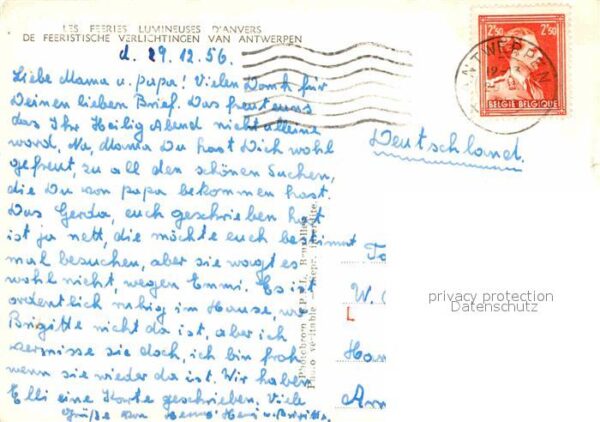 LES FEERIES LUMINEUSES D'ANVERS
DE FEERISTISCHE VERLICHTINGEN VAN ANTWERPEN
d. 29.12.56.
Liebe Mama u. papa! Vielen Dank für
Deinen lieben Brief. Das freut uns
das Ihr Heilig Abend nicht alleine
ward, Na, Mama Du hast Dich wohl
gefreut, zu all den schönen Sachen,
die Du von papa bekommen hast.
Das Gerda, euch geschrieben hat
ist ja nett, die möchte euch bestimmt
mal besuchen, aber sie wagt es
wohl nicht, wegen Emmi. Es ist
ordentlich ruhig im Hause, wo
Brigitte nicht da ist, aber ich
vermisse sie doch, ich bin froh
wenn sie wieder da ist. Wir haben
Elli eine Karte geschrieben. Viele
Grüße von Heini u. Brigitte
12'50 2'50
BELGIE BELGIQUE
ANTWERPEN
Deutschland.
W.
L
Photochrom
Bruxelles
Photo véritable - Repr. interdite
privacy protection
Datenschutz